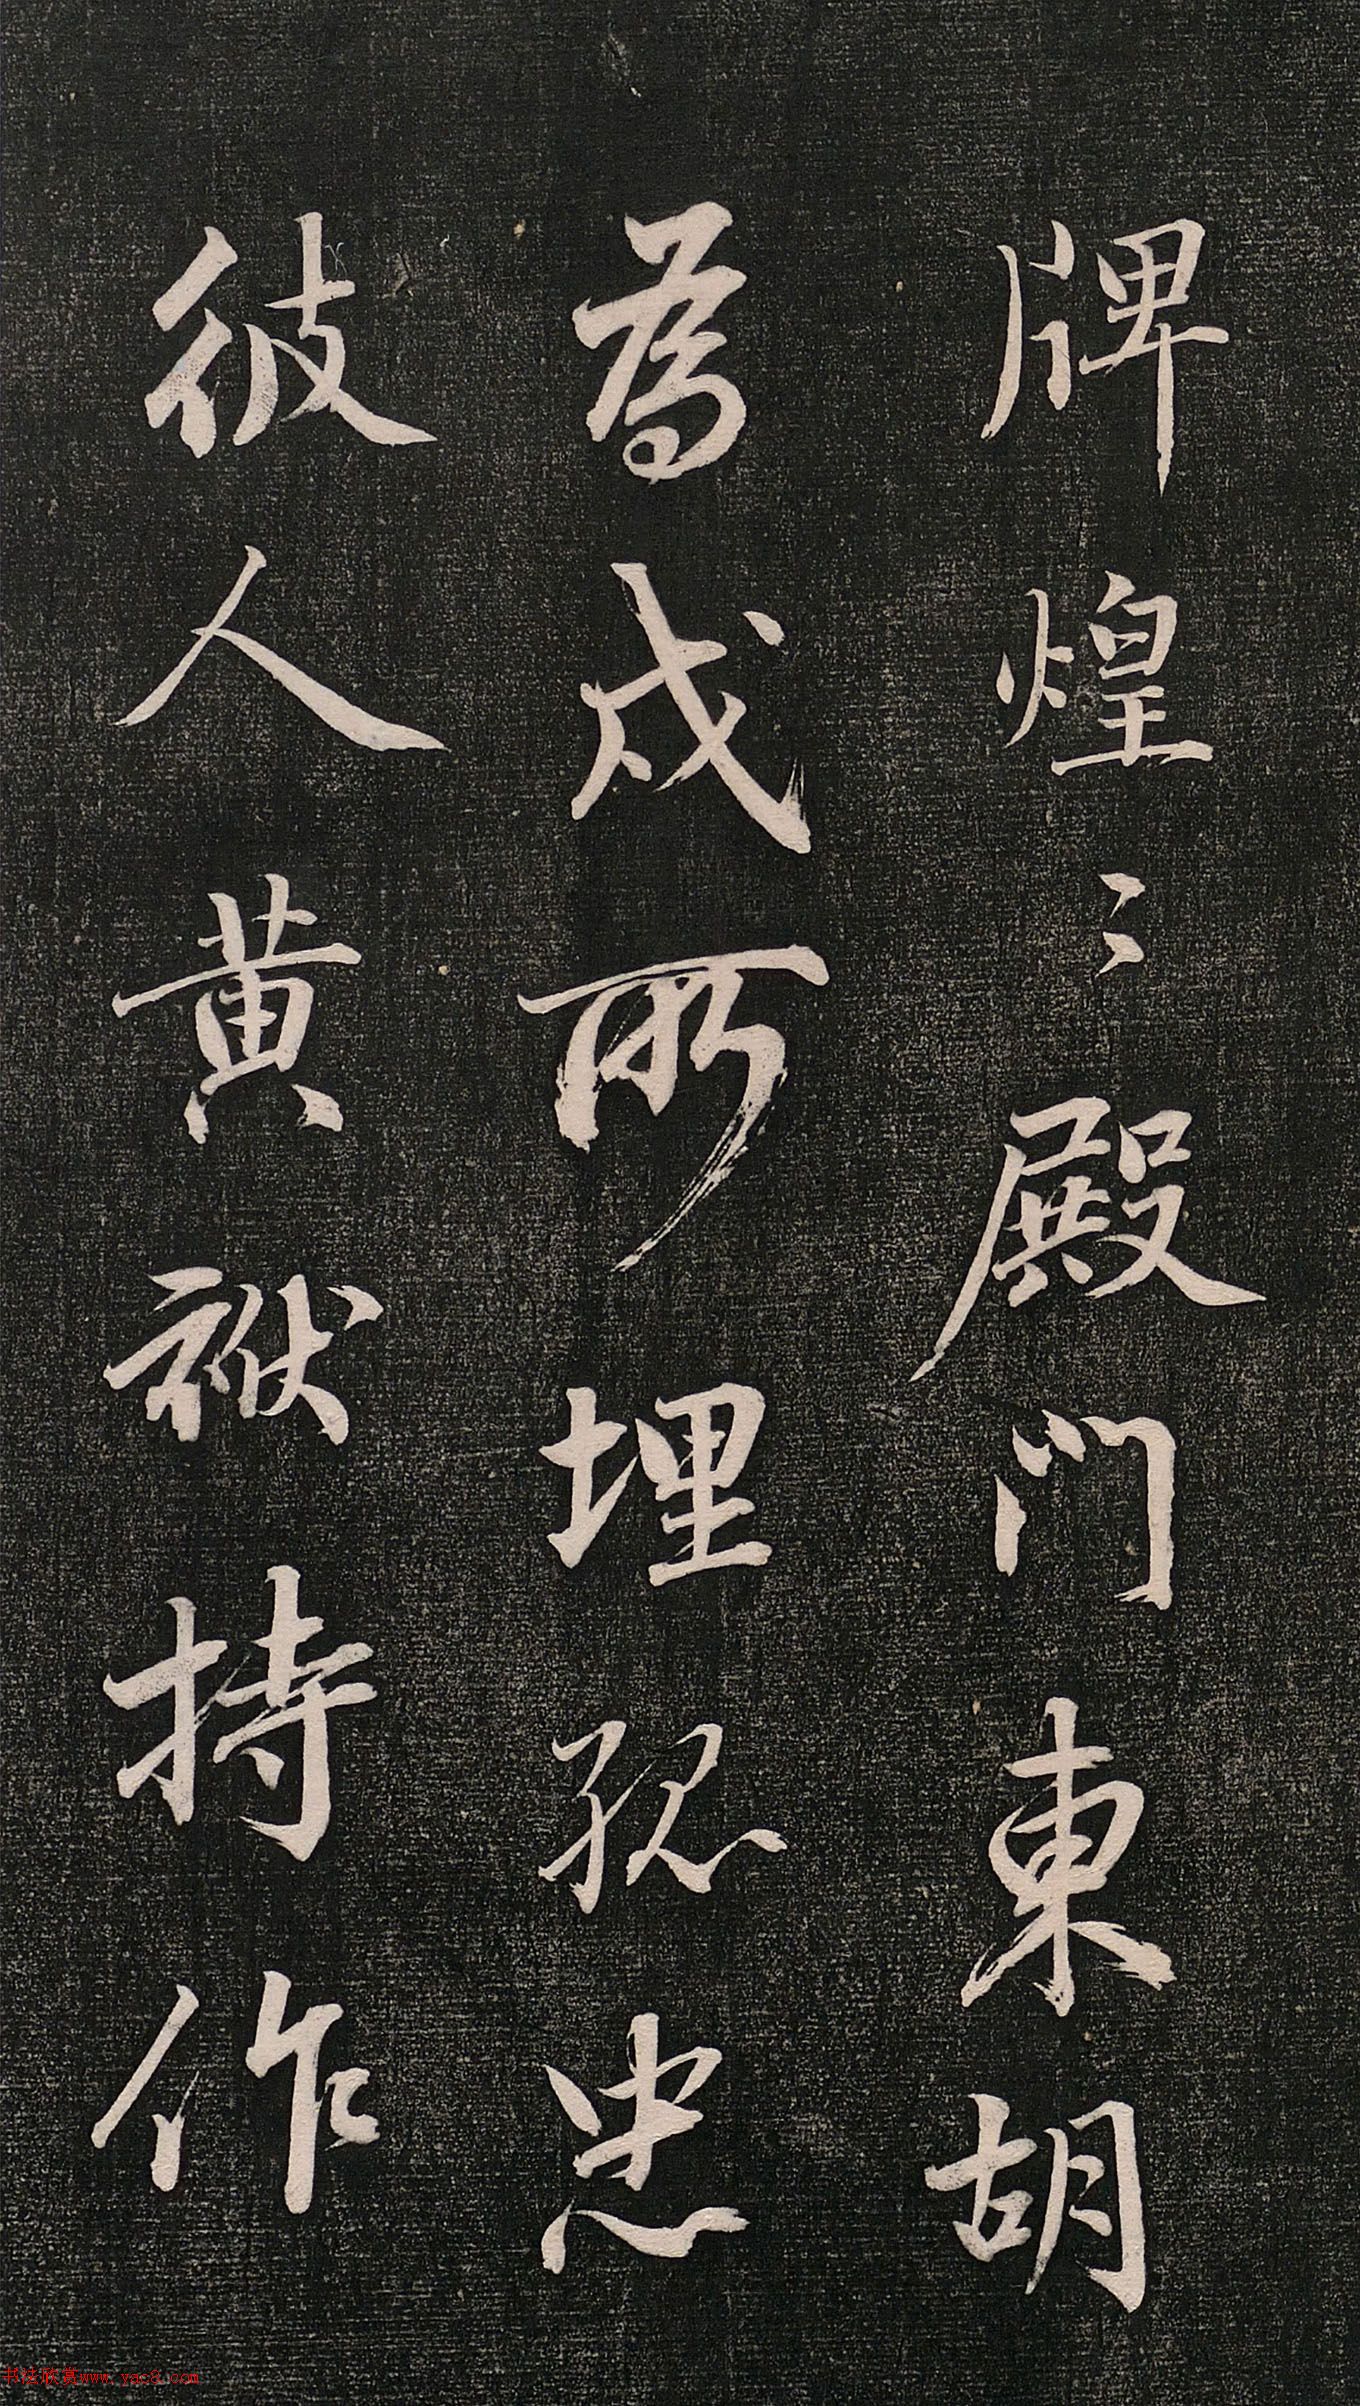 牌煌〻殿門東胡
為戍所埋孤忠
彼人黄猷持作
书法欣赏www.yac8.com